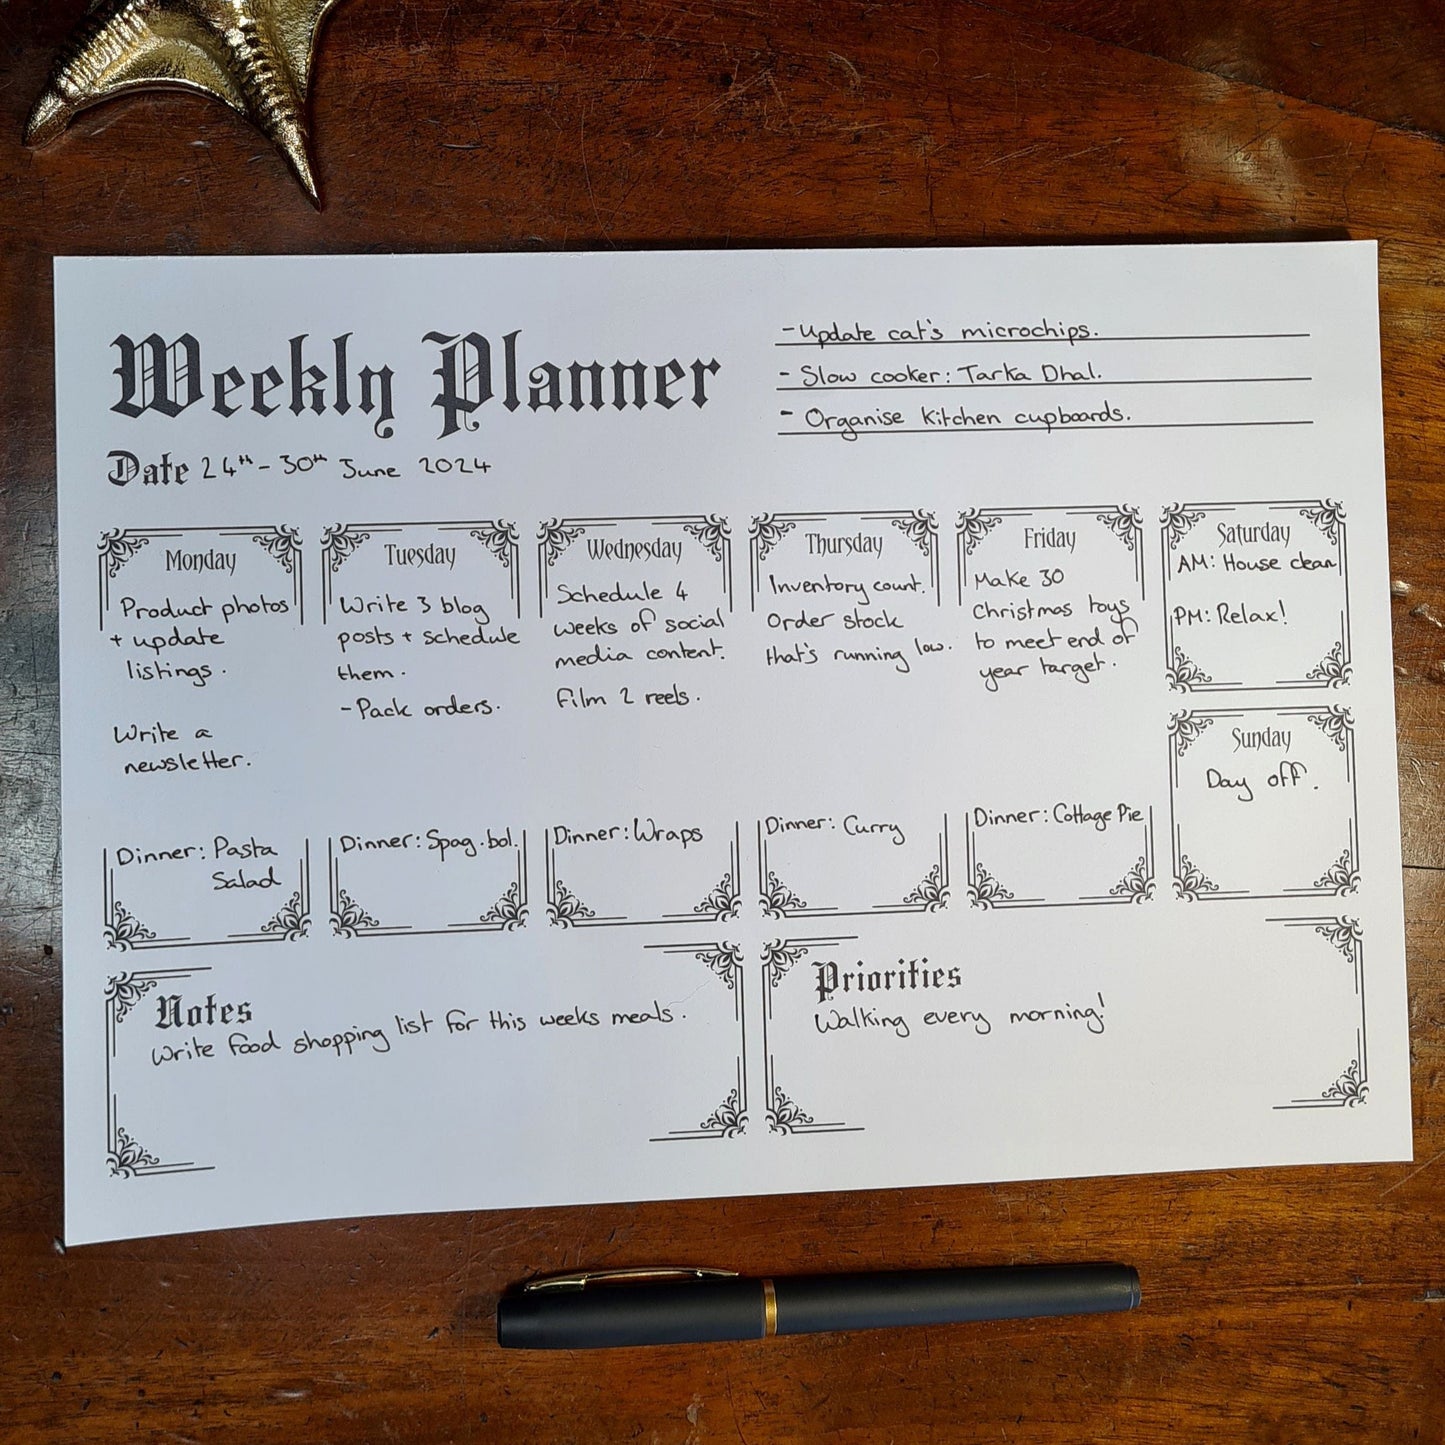 Weekly Planner
Date 24th - 30th June 2024
- Update cat's microchips.
- Slow cooker: Tarka Dhal.
- Organise kitchen cupboards.
Monday
Product photos
+ update
listings.
Write a
newsletter.
Dinner: Pasta
Salad
Tuesday
Write 3 blog
posts + schedule
them.
- Pack orders.
Dinner: Spag. bol.
Wednesday
Schedule 4
weeks of social
media content.
Film 2 reels.
Dinner: Wraps
Thursday
Inventory count.
Order stock
that's running low.
Dinner: Curry
Friday
Make 30
Christmas toys
to meet end of
year target.
Dinner: Cottage Pie
Saturday
AM: House clean
PM: Relax!
Sunday
Day off.
Notes
Write food shopping list for this weeks meals.
Priorities
Walking every morning!